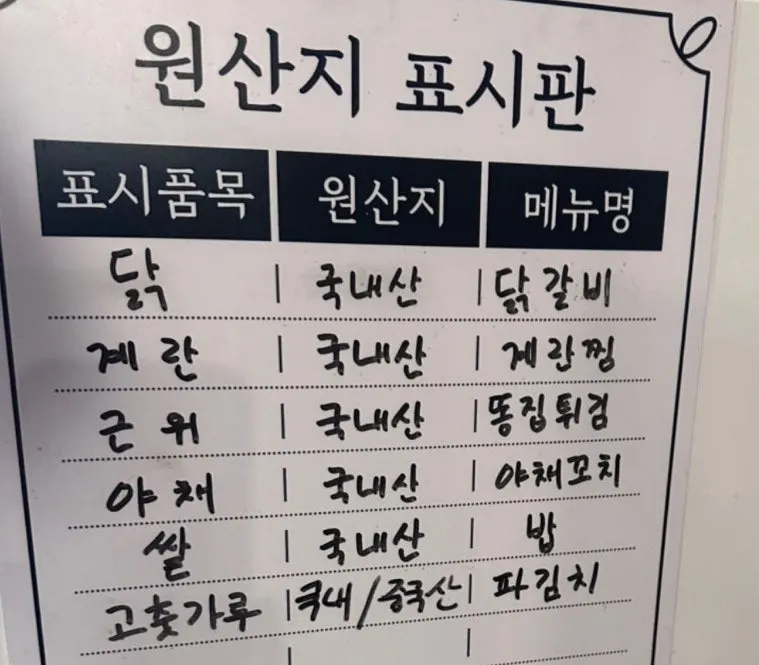 원산지 표시판
표시품목 원산지 메뉴명
닭 국내산 닭갈비
계란 국내산 계란찜
근위 국내산 똥집튀김
야채 국내산 야채꼬치
쌀 국내산 밥
고춧가루 국내/중국산 파김치